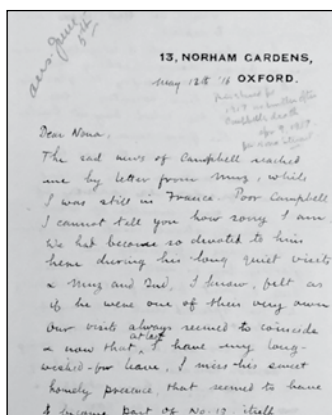 ans. June
5th
13, NORHAM GARDENS,
OXFORD.
May 12th '16
1917 as written after
Campbell's death
Apr 9, 1917
Dear Nona,
The sad news of Campbell reached
me by letter from Muz, while
I was still in France. Poor Campbell
I cannot tell you how sorry I am
We had become so devoted to him
here during his long quiet visits
& Muz and 2nd, I know, felt as
if he were one of their very own
Our visits always seemed to coincide
& now that at last I have my long-
wished-for leave, I miss his sweet
homely presence, that seemed to have
become part of No. 13 itself